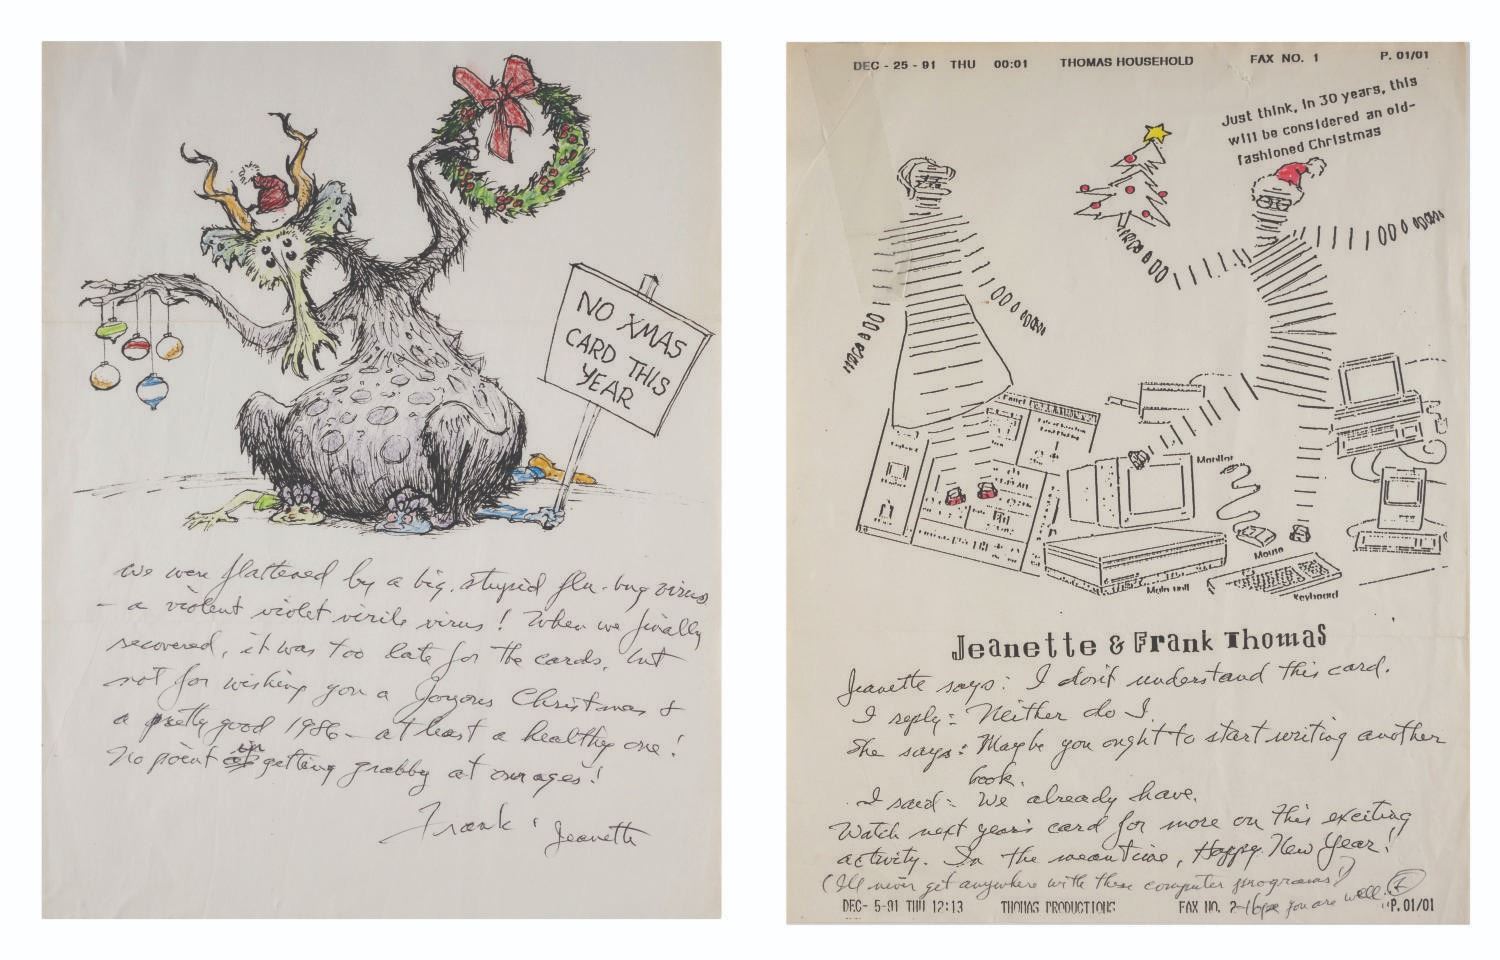 NO XMAS
CARD THIS
YEAR
We were flattened by a big, stupid flu-bug virus
- a violent violet virile virus! When we finally
recovered, it was too late for the cards, but
not for wishing you a Joyous Christmas &
a pretty good 1986 - at least a healthy one!
No point in getting grabby at our ages!
Frank & Jeanette
DEC - 25 - 91 THU 00:01 THOMAS HOUSEHOLD FAX NO. 1 P. 01/01
Just think, in 30 years, this
will be considered an old-
fashioned Christmas
Panel
Monitor
Mouse
Main unit
Keyboard
Jeanette & Frank Thomas
Jeanette says: I don't understand this card.
I reply: Neither do I.
She says: Maybe you ought to start writing another
book.
I said: We already have.
Watch next year's card for more on this exciting
activity. In the meantime, Happy New Year!
(I'll never get anywhere with these computer programs!)
- Hope you are well. F
DEC- 5-91 THU 12:13 THOMAS PRODUCTIONS FAX NO. 2 P.01/01